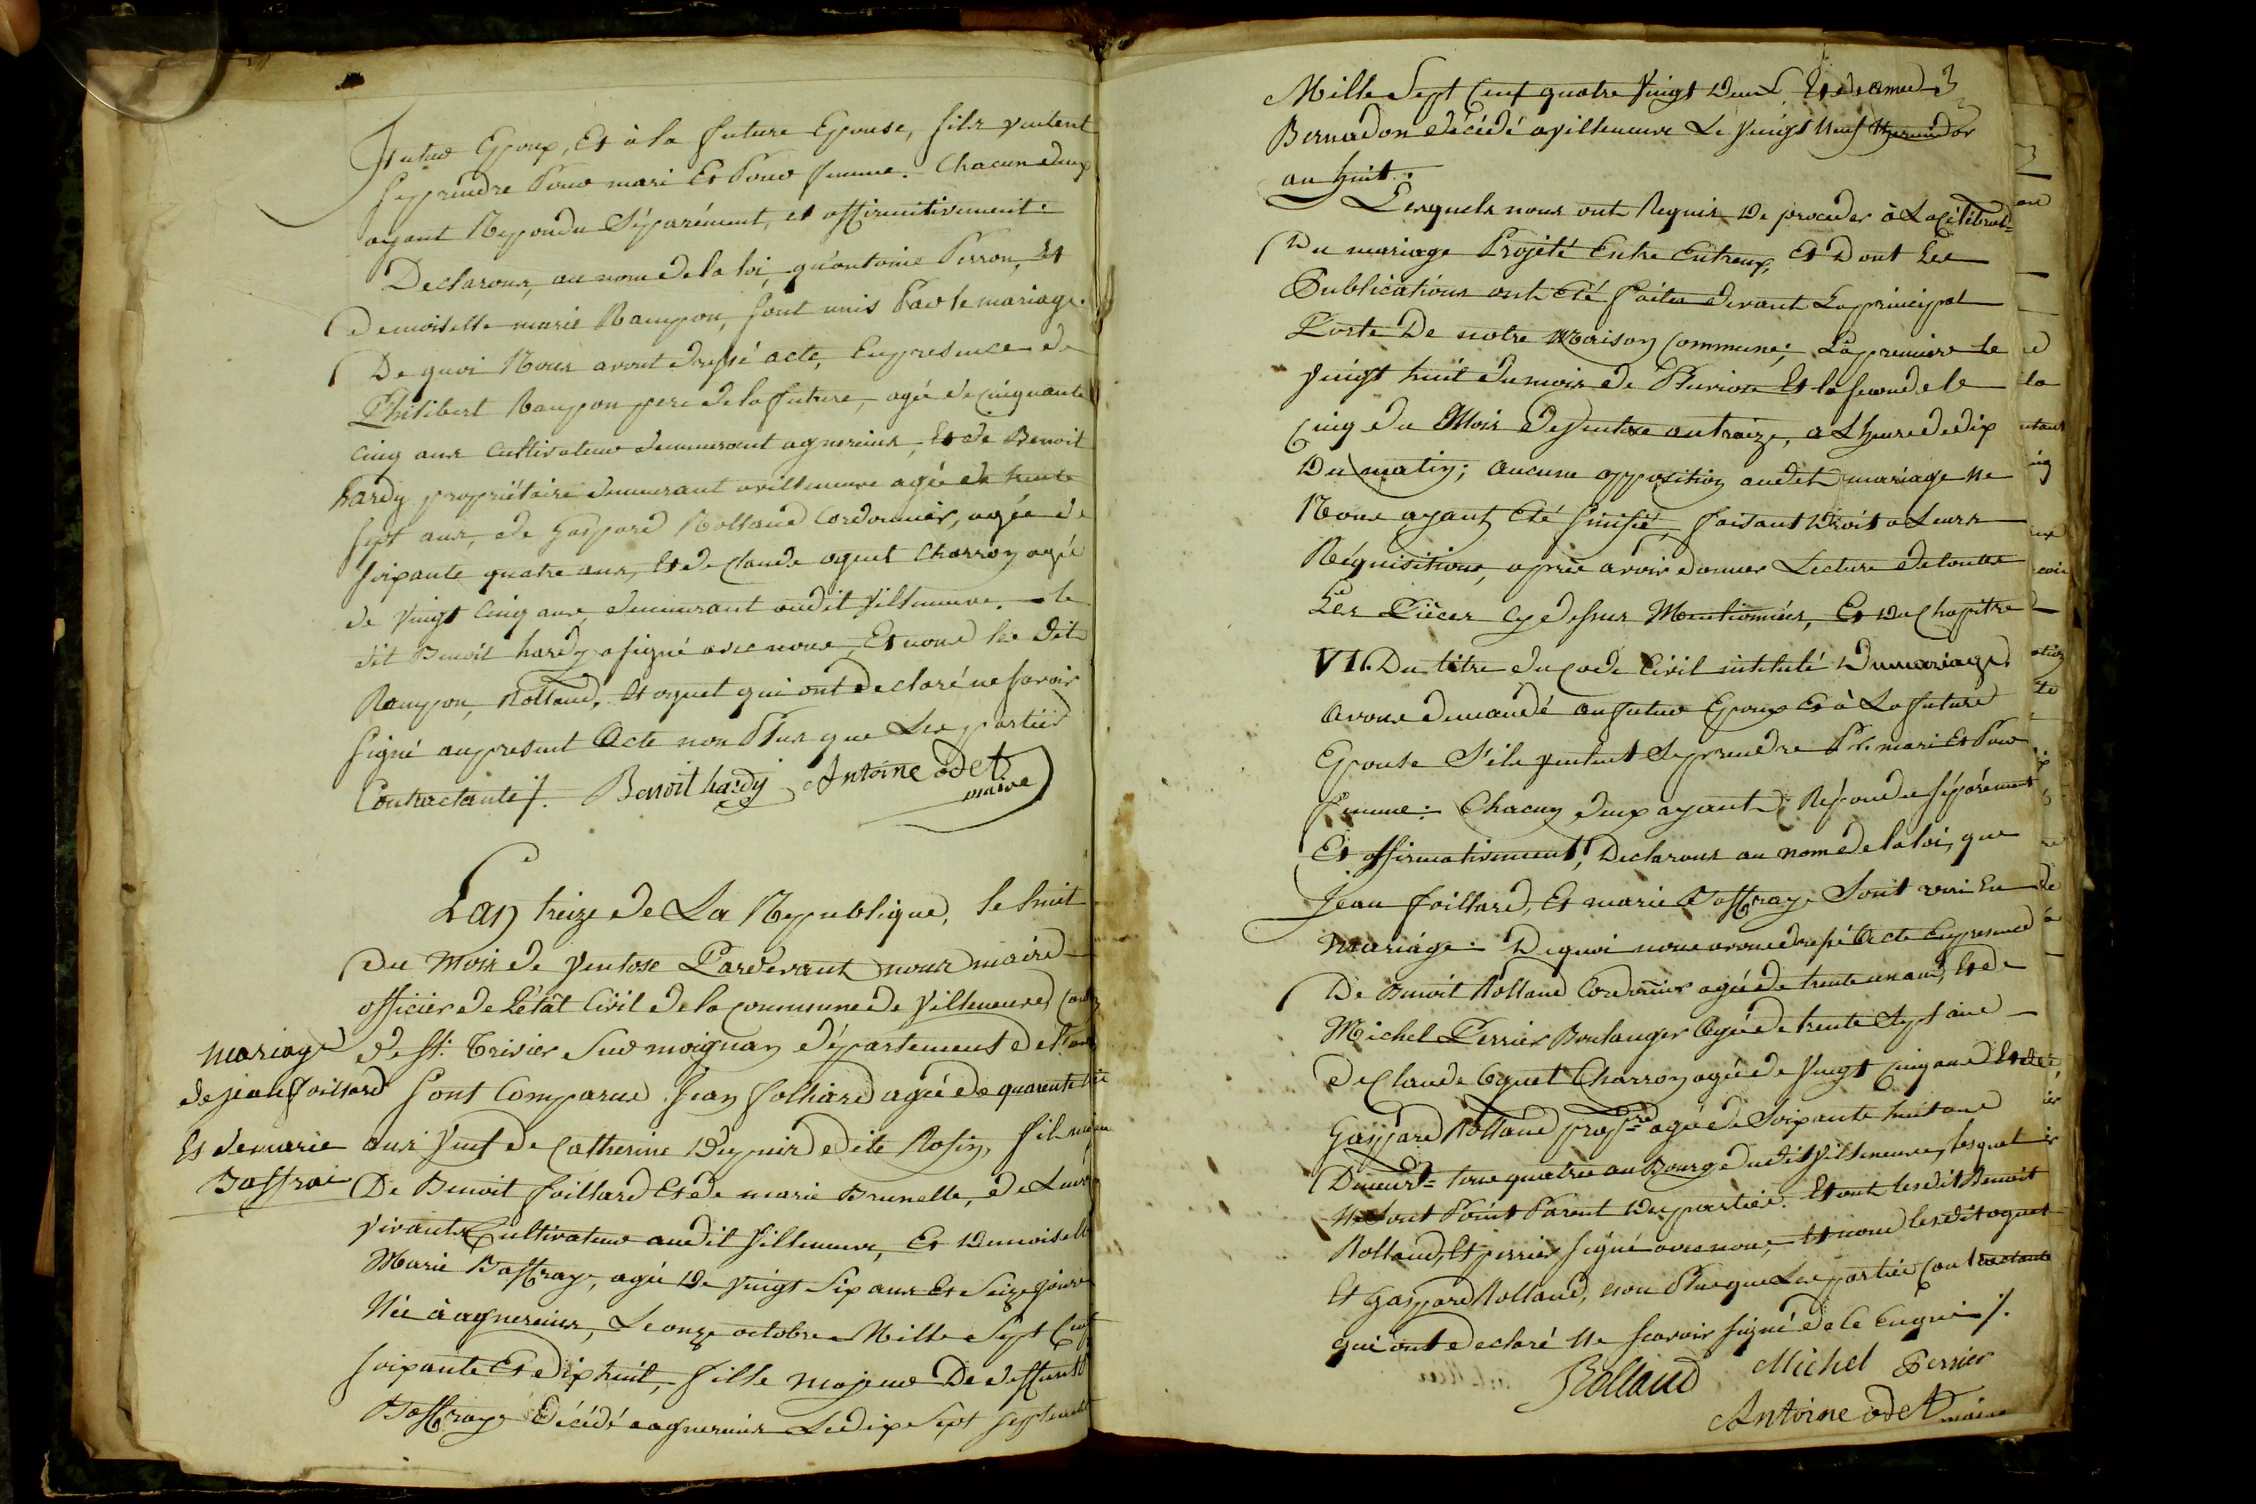 futur Epoux, Et à la future Epouse, s'ils veulent
se prendre Pour mari Et Pour femme. Chacun deux
ayant Repondu Séparément, et affirmitivement.
Declarons, au nom de la loi, qu'antoine Perron, Et
Demoiselle marie Rampon, sont unis Par le mariage.
De quoi Nous avont dressé acte, En presence de
Philibert Rampon pere de la future, agé de cinquante
cinq ans cultivateur demeurant agnereins, Et de Benoit
hardy propriétaire demeurant avilleneuve agée de trente
sept ans, de Gaspard Rolland Cordonnier, agée de
soixante quatre ans, Et de Claude oguet Charron agé
de vingt cinq ans, demeurant audit Villeneuve. le
dit Benoit hardy a signé avec nous, Et nond les dit
Rampon, Rolland, Et oguet qui ont declaré ne savoir
signé au present acte non Plus que Les parties
Contractante ./. Benoit hardy Antoine odet
maire
Lan treize de La Republique, le huit
du Mois de Ventose Pardevant nous maire
officier de L'état Civil de la commune de Villeneuve,
mariage de St. Trivier Sur moignan département de
de jean foillard sont Comparus Jean folliard agée de quarente
Et de marie ans Veuf de Catherine dite Rosin, fils
Baffrai De Benoit foillard Et de marie Brunelle, de Leur
vivants Cultivateur audit Villeneuve, Et Demoiselle
Marie Baffray, agée De vingt Six ans Et Seize jours
Née à agnereins, Le onze octobre Mille Sept Cent
soixante Et dix huit, fille majeur De deffunt
Baffray Décédé aagnereins Le dix Sept Septembre
Mille Sept Cent quatre Vingt Deux Et de
Bernadon décédé avilleneuve Le Vingt Neuf thermidor
an huit.
Lesquels nous ont Requis De proceder à La célébrat=
Du mariage Projété Entre Entreux, Et Dont Les
Publications ont Eté faites devant La principal
Porte De notre Maison Commune; La premiere le
vingt huit du mois de Pluviose Et la seconde le
Cinq du Mois de Ventose an traize, a L'heure de dix
Du matin; aucune opposition audit mariage ne
Nous ayant Eté sinifié, faisant Droit a Leurs
Réquisitions, après avoir donner Lecture de toutes
Les Pièces Cy dessus Mentionnées, Et Du Chapitre
VI. Du titre du code Civil intitulé Du mariage,
avons demandé au futur Epoux Et à La future
Epouse S'ils veulent Se prendre Pr. mari Et Pour
femme: Chacun deux ayant Répondu séparément
Et affirmativement, Declarons au nom de la loi, que
Jean foillard, Et marie Baffray Sont uni En
Mariage. De quoi nous avons dressé Acte En presence
De Benoit Rolland Cordonnier agée de trente un ans, Et de
Michel Perrier Boulanger Agée de trente Sept ans
de Claude Oguet Charron agée de Vingt Cinq ans Et de
Gaspard Rolland propre. agée de Soixante huit ans
Demeurt= tous quatres au Bourg dudit Villeneuve, lesquel
Ne sont Point Parent Des parties. Et ont lesdit Benoit
Rolland, Et perrier signé avec nous, Et nond lesdit oguet
Et Gaspard Rolland, non Plus que Les parties Contractante
qui ont declaré Ne scavoir signé de ce Enquis ./.
Rolland Michel Perrier
Antoine odet maire